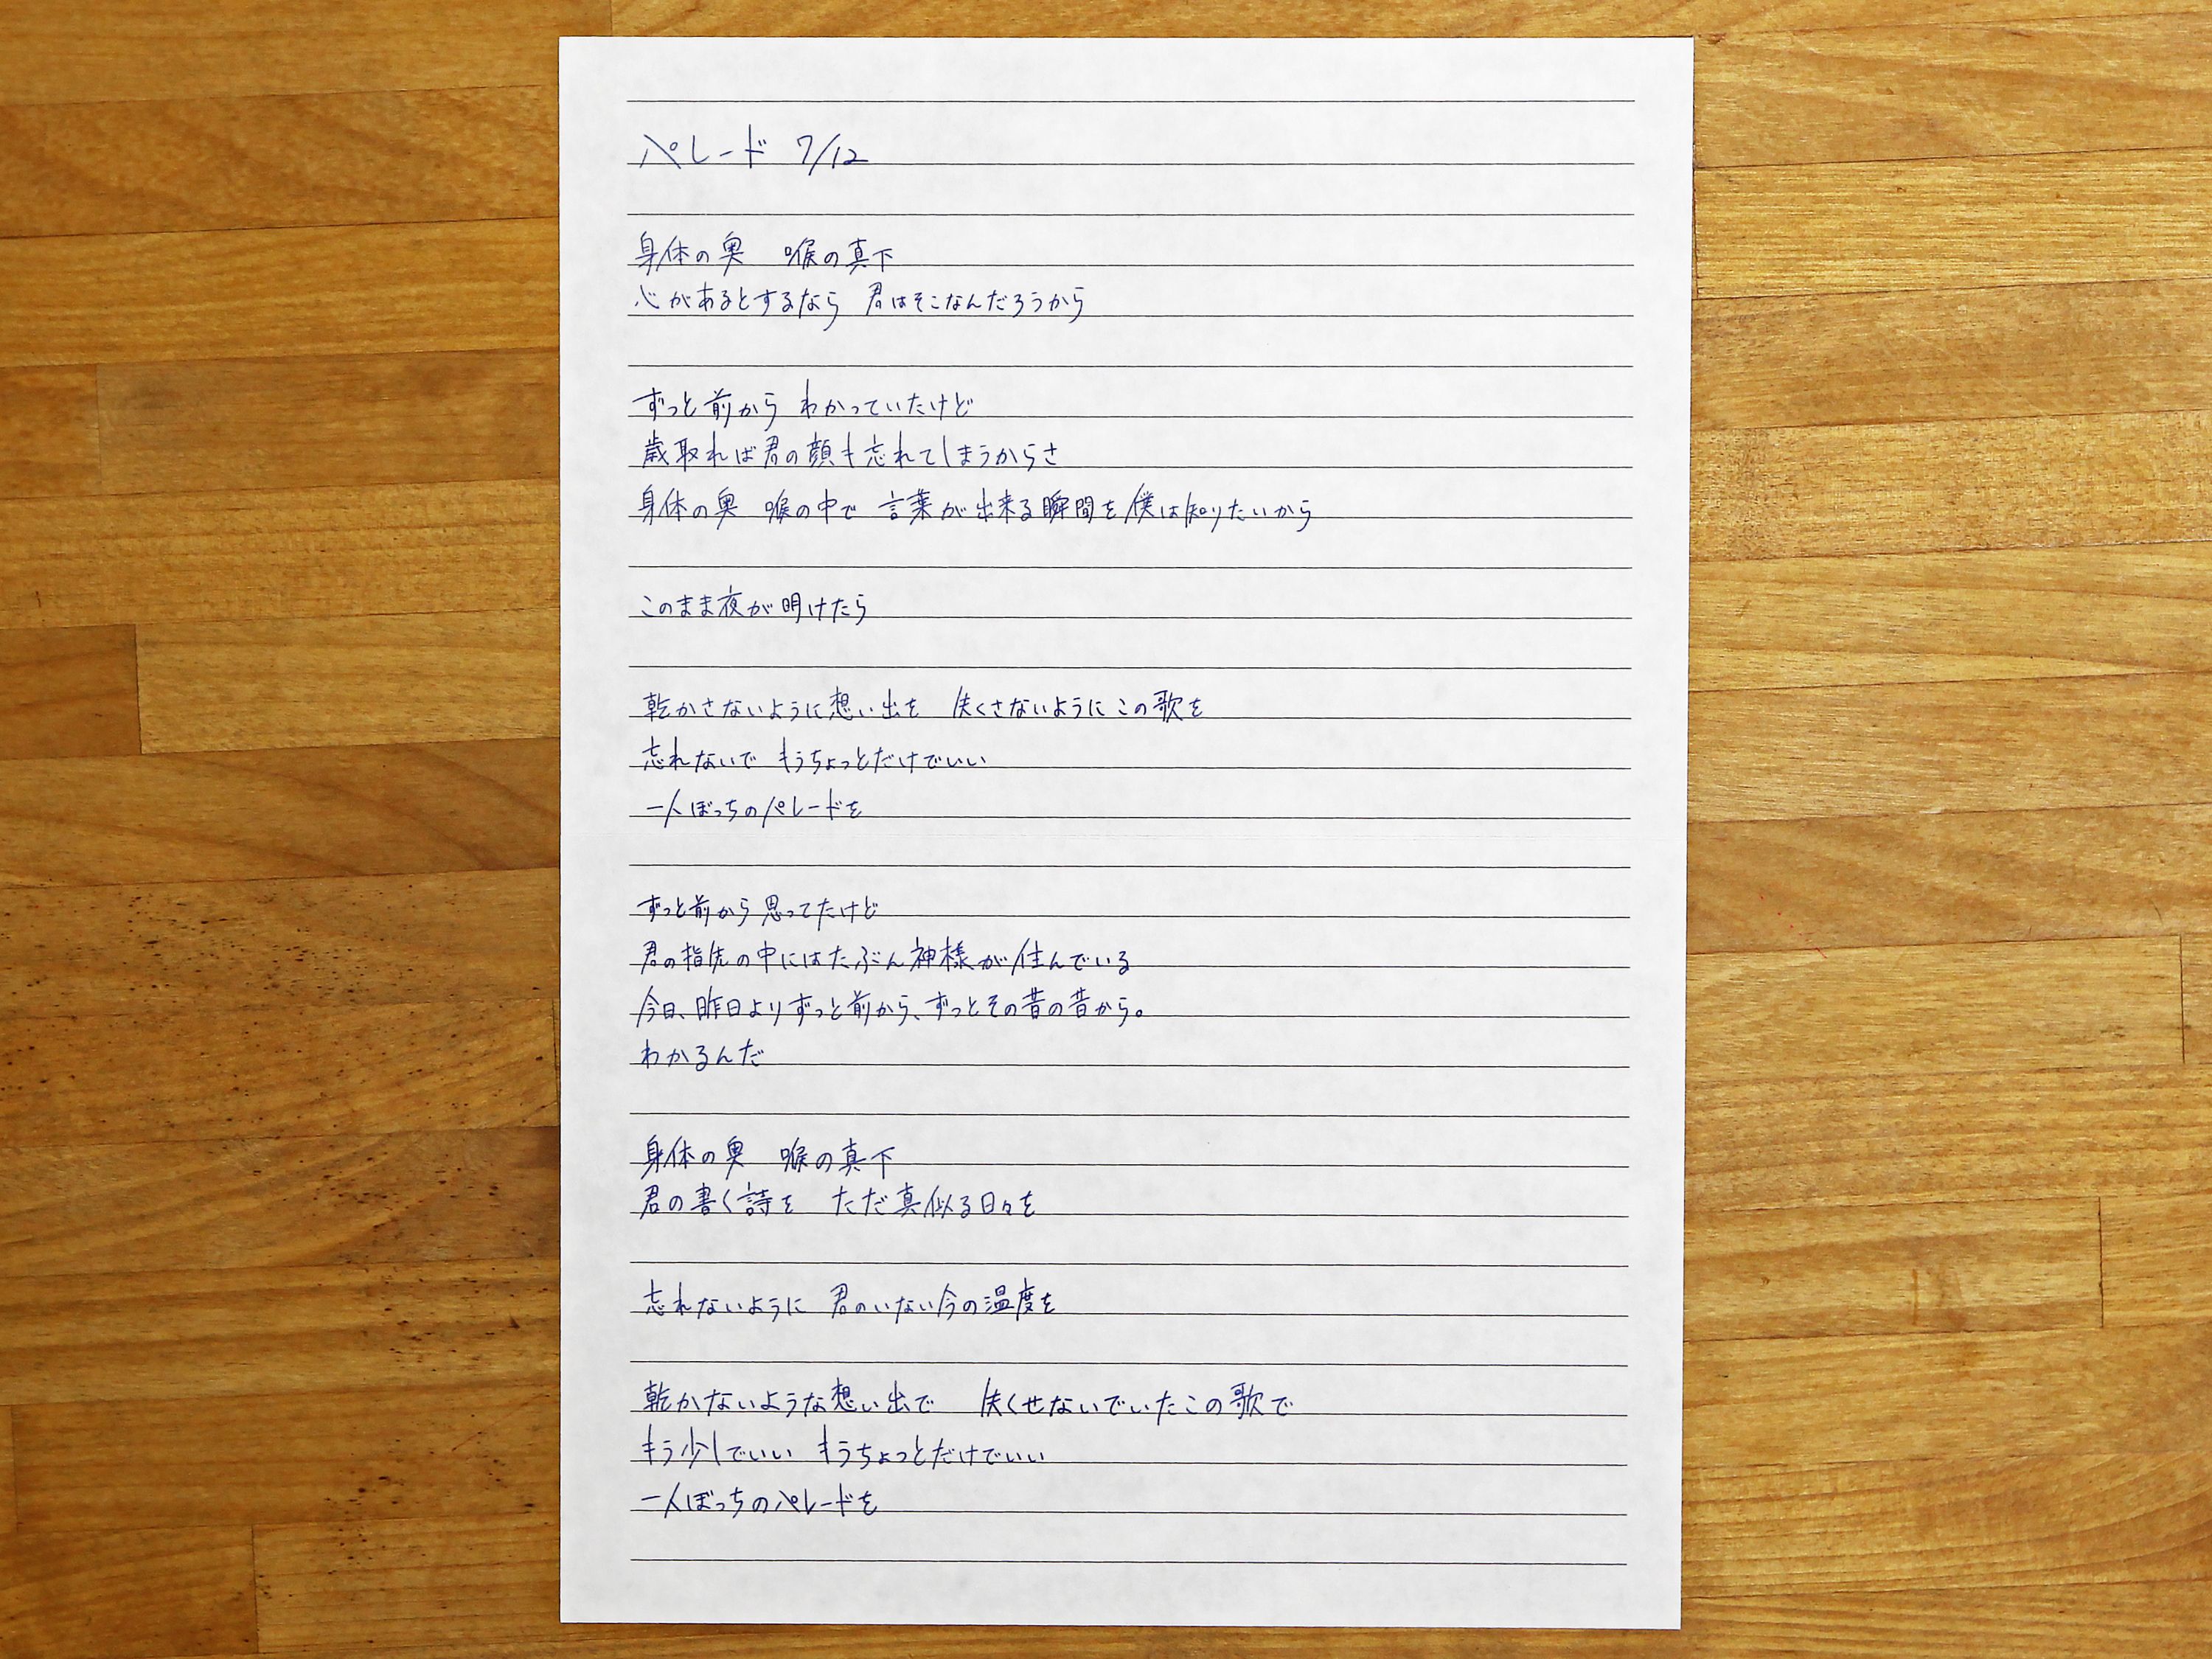 パレード 7/12
身体の奥　喉の真下
心があるとするなら　君はそこなんだろうから
ずっと前から　わかっていたけど
歳取れば君の顔も忘れてしまうからさ
身体の奥　喉の中で　言葉が出来る瞬間を僕は知りたいから
このまま夜が明けたら
乾かさないように想い出を　失くさないようにこの歌を
忘れないで　もうちょっとだけでいい
一人ぼっちのパレードを
ずっと前から思ってたけど
君の指先の中にはたぶん神様が住んでいる
今日、昨日よりずっと前から、ずっとその昔の昔から。
わかるんだ
身体の奥　喉の真下
君の書く詩を　ただ真似る日々を
忘れないように　君のいない今の温度を
乾かないような想い出で　失くせないでいたこの歌で
もう少しでいい　もうちょっとだけでいい
一人ぼっちのパレードを